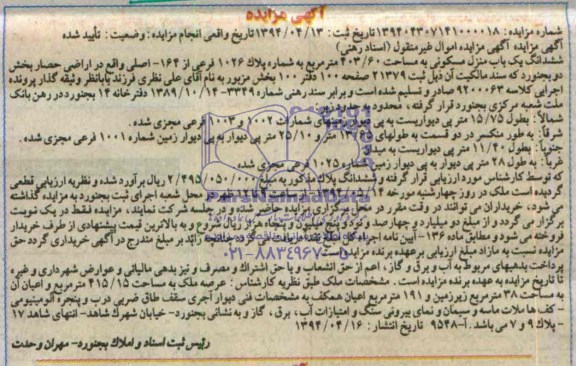 آگهی مزایده
شماره مزایده: ۱۳۹۴۰۴۳۰۷۱۴۱۰۰۰۰۱۸ تاریخ ثبت: ۱۳۹۴/۰۴/۱۳ تاریخ واقعی انجام مزایده: وضعیت: تأیید شده
آگهی مزایده آگهی مزایده اموال غیرمنقول (اسناد رهنی)
ششدانگ یک باب منزل مسکونی به مساحت ۴۰۳/۶۰ مترمربع به شماره پلاک ۱۰۲۶ فرعی از ۱۶۴- اصلی واقع در اراضی حصار بخش
دو بجنورد که سند مالکیت آن ذیل ثبت ۲۱۳۷۹ صفحه ۱۰۰ دفتر ۱۰۰ بخش مزبور به نام آقای علی نظری فرزند بابانظر وثیقه گذار پرونده
اجرایی کلاسه ۹۲۰۰۰۶۳ صادر و تسلیم شده است و برابر سند رهنی شماره ۳۳۴۹-۱۳۸۹/۱۰/۱۴ دفترخانه ۱۴ بجنورد در رهن بانک
ملت شعبه مرکزی بجنورد قرار گرفته، محدود به حدود زیر:
شمالاً: بطول ۱۵/۷۵ متر پی دیوار به پی دیوار زمینهای شمارات ۱۰۰۲ و ۱۰۰۳ فرعی مجزی شده.
شرقاً: به طور منکسر در دو قسمت به طولهای ۱۳/۶۵ متر، ۱۰/۲۵ متر پی دیوار به پی دیوار زمین شماره ۱۰۰۱ فرعی مجزی شده.
جنوباً: بطول ۱۱/۴۰ متر پی دیواریست به میدان
غرباً: به طول ۲۸ متر پی دیوار به پی دیوار زمین شماره ۱۰۲۵ فرعی مجزی شده
که توسط کارشناس مورد ارزیابی قرار گرفته و ششدانگ پلاک مذکور به مبلغ ۲/۴۹۵/۰۵۰/۰۰۰ ریال برآورد شده و نظریه ارزیابی قطعی
گردیده است ملک در روز چهارشنبه مورخه ۱۳۹۴/۰۵/۱۴ از ساعت ۹ الی ۱۲ ظهر در محل شعبه اجرای ثبت بجنورد به مزایده گذاشته
می شود، خریداران می توانند در وقت مقرر در محل برگزاری مزایده حاضر شده و در جلسه شرکت نمایند، مزایده فقط در یک نوبت
برگزار می گردد و از مبلغ دو میلیارد و چهارصد و نود و پنج میلیون و پنجاه هزار ریال شروع و به بالاترین قیمت پیشنهادی از طرف خریدار
فروخته می شود و مطابق ماده ۱۳۶- آیین نامه اجرا زائد بر مبلغ مندرج در آگهی خریداری گردد حق
مزایده نسبت به مازاد مبلغ ارزیابی برعهده برنده مزایده
پرداخت بدهیهای مربوط به آب و برق و گاز، اعم از حق انشعاب و یا حق اشتراک و مصرف و نیز بدهی مالیاتی و عوارض شهرداری و غیره
تا تاریخ مزایده به عهده برنده مزایده است. مشخصات ملک طبق نظریه کارشناس: عرصه ملک به مساحت ۴۱۵/۱۵ مترمربع و اعیان آن
به مساحت ۳۸ مترمربع زیرزمین و ۱۹۱ مترمربع اعیان همکف به مشخصات فنی دیوار آجری سقف طاق ضربی درب و پنجره آلومینیومی
- کف ها ملات ماسه و سیمان و نمای بیرونی سنگ و امتیازات آب، برق، گاز و به نشانی بجنورد- خیابان شهرک شاهد- انتهای شاهد ۱۷
- پلاک ۹ و ۷ می باشد. آ-۹۵۴۸ تاریخ انتشار: ۱۳۹۴/۰۴/۱۶
رئیس ثبت اسناد و املاک بجنورد- مهران وحدت
ParsNamadData
۰۲۱-۸۸۳۴۹۶۷۰-۵